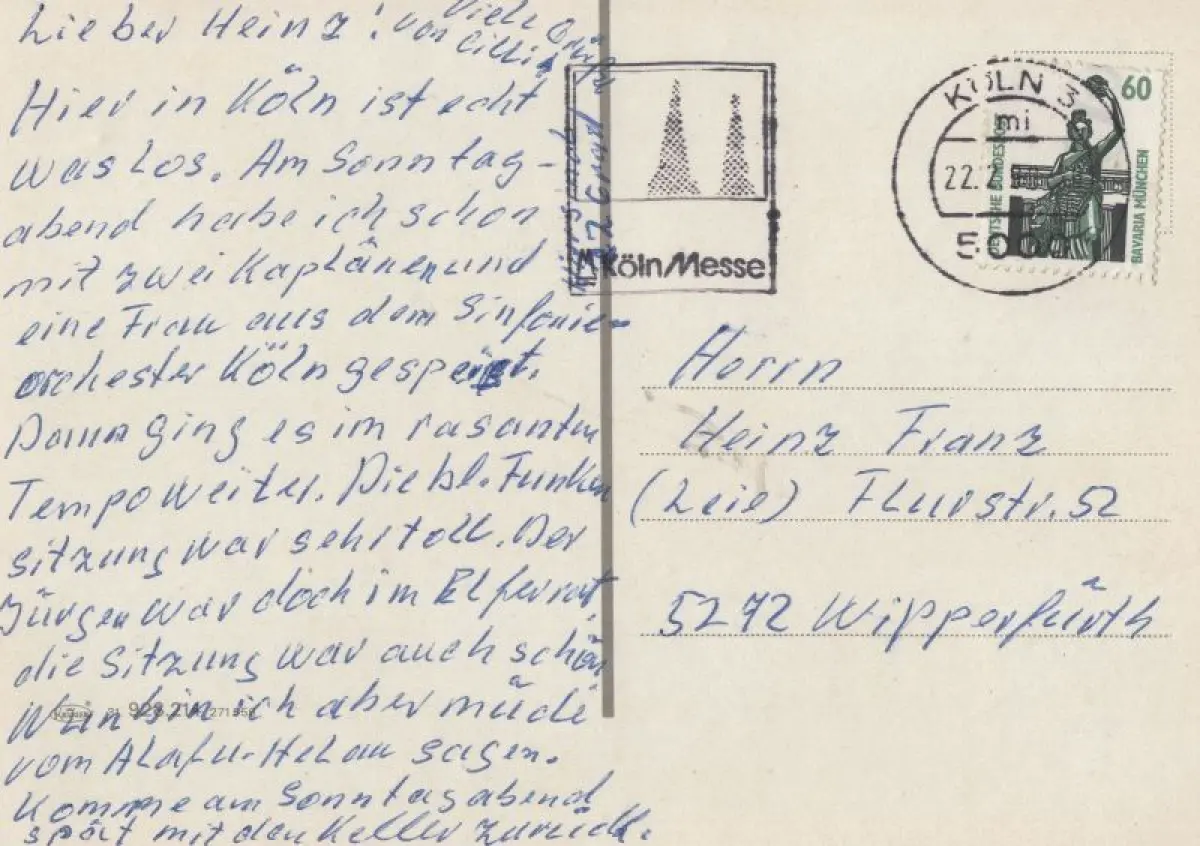 Lieber Heinz!
Viele Grüße
von Cilli
Hier in Köln ist echt
was los. Am Sonntag-
abend habe ich schon
mit zwei Kaplänen und
eine Frau aus dem Sinfonie-
orchester Köln gespeist.
Dann ging es im rasanten
Tempo weiter. Die bl. Funken
sitzung war sehr toll. Der
Jürgen war doch im Elferrat,
die Sitzung war auch schön
bin ich aber müde
vom Alafu-Helau sagen.
Komme am Sonntagabend
spät mit den Keller zurück.
31 928.214
KölnMesse
KÖLN 3
mi
22.2.
5000
60
DEUTSCHE BUNDESPOST
BAVARIA MÜNCHEN
Herrn
Heinz Franz
(Leie) Flurstr. 52
5272 Wipperfürth